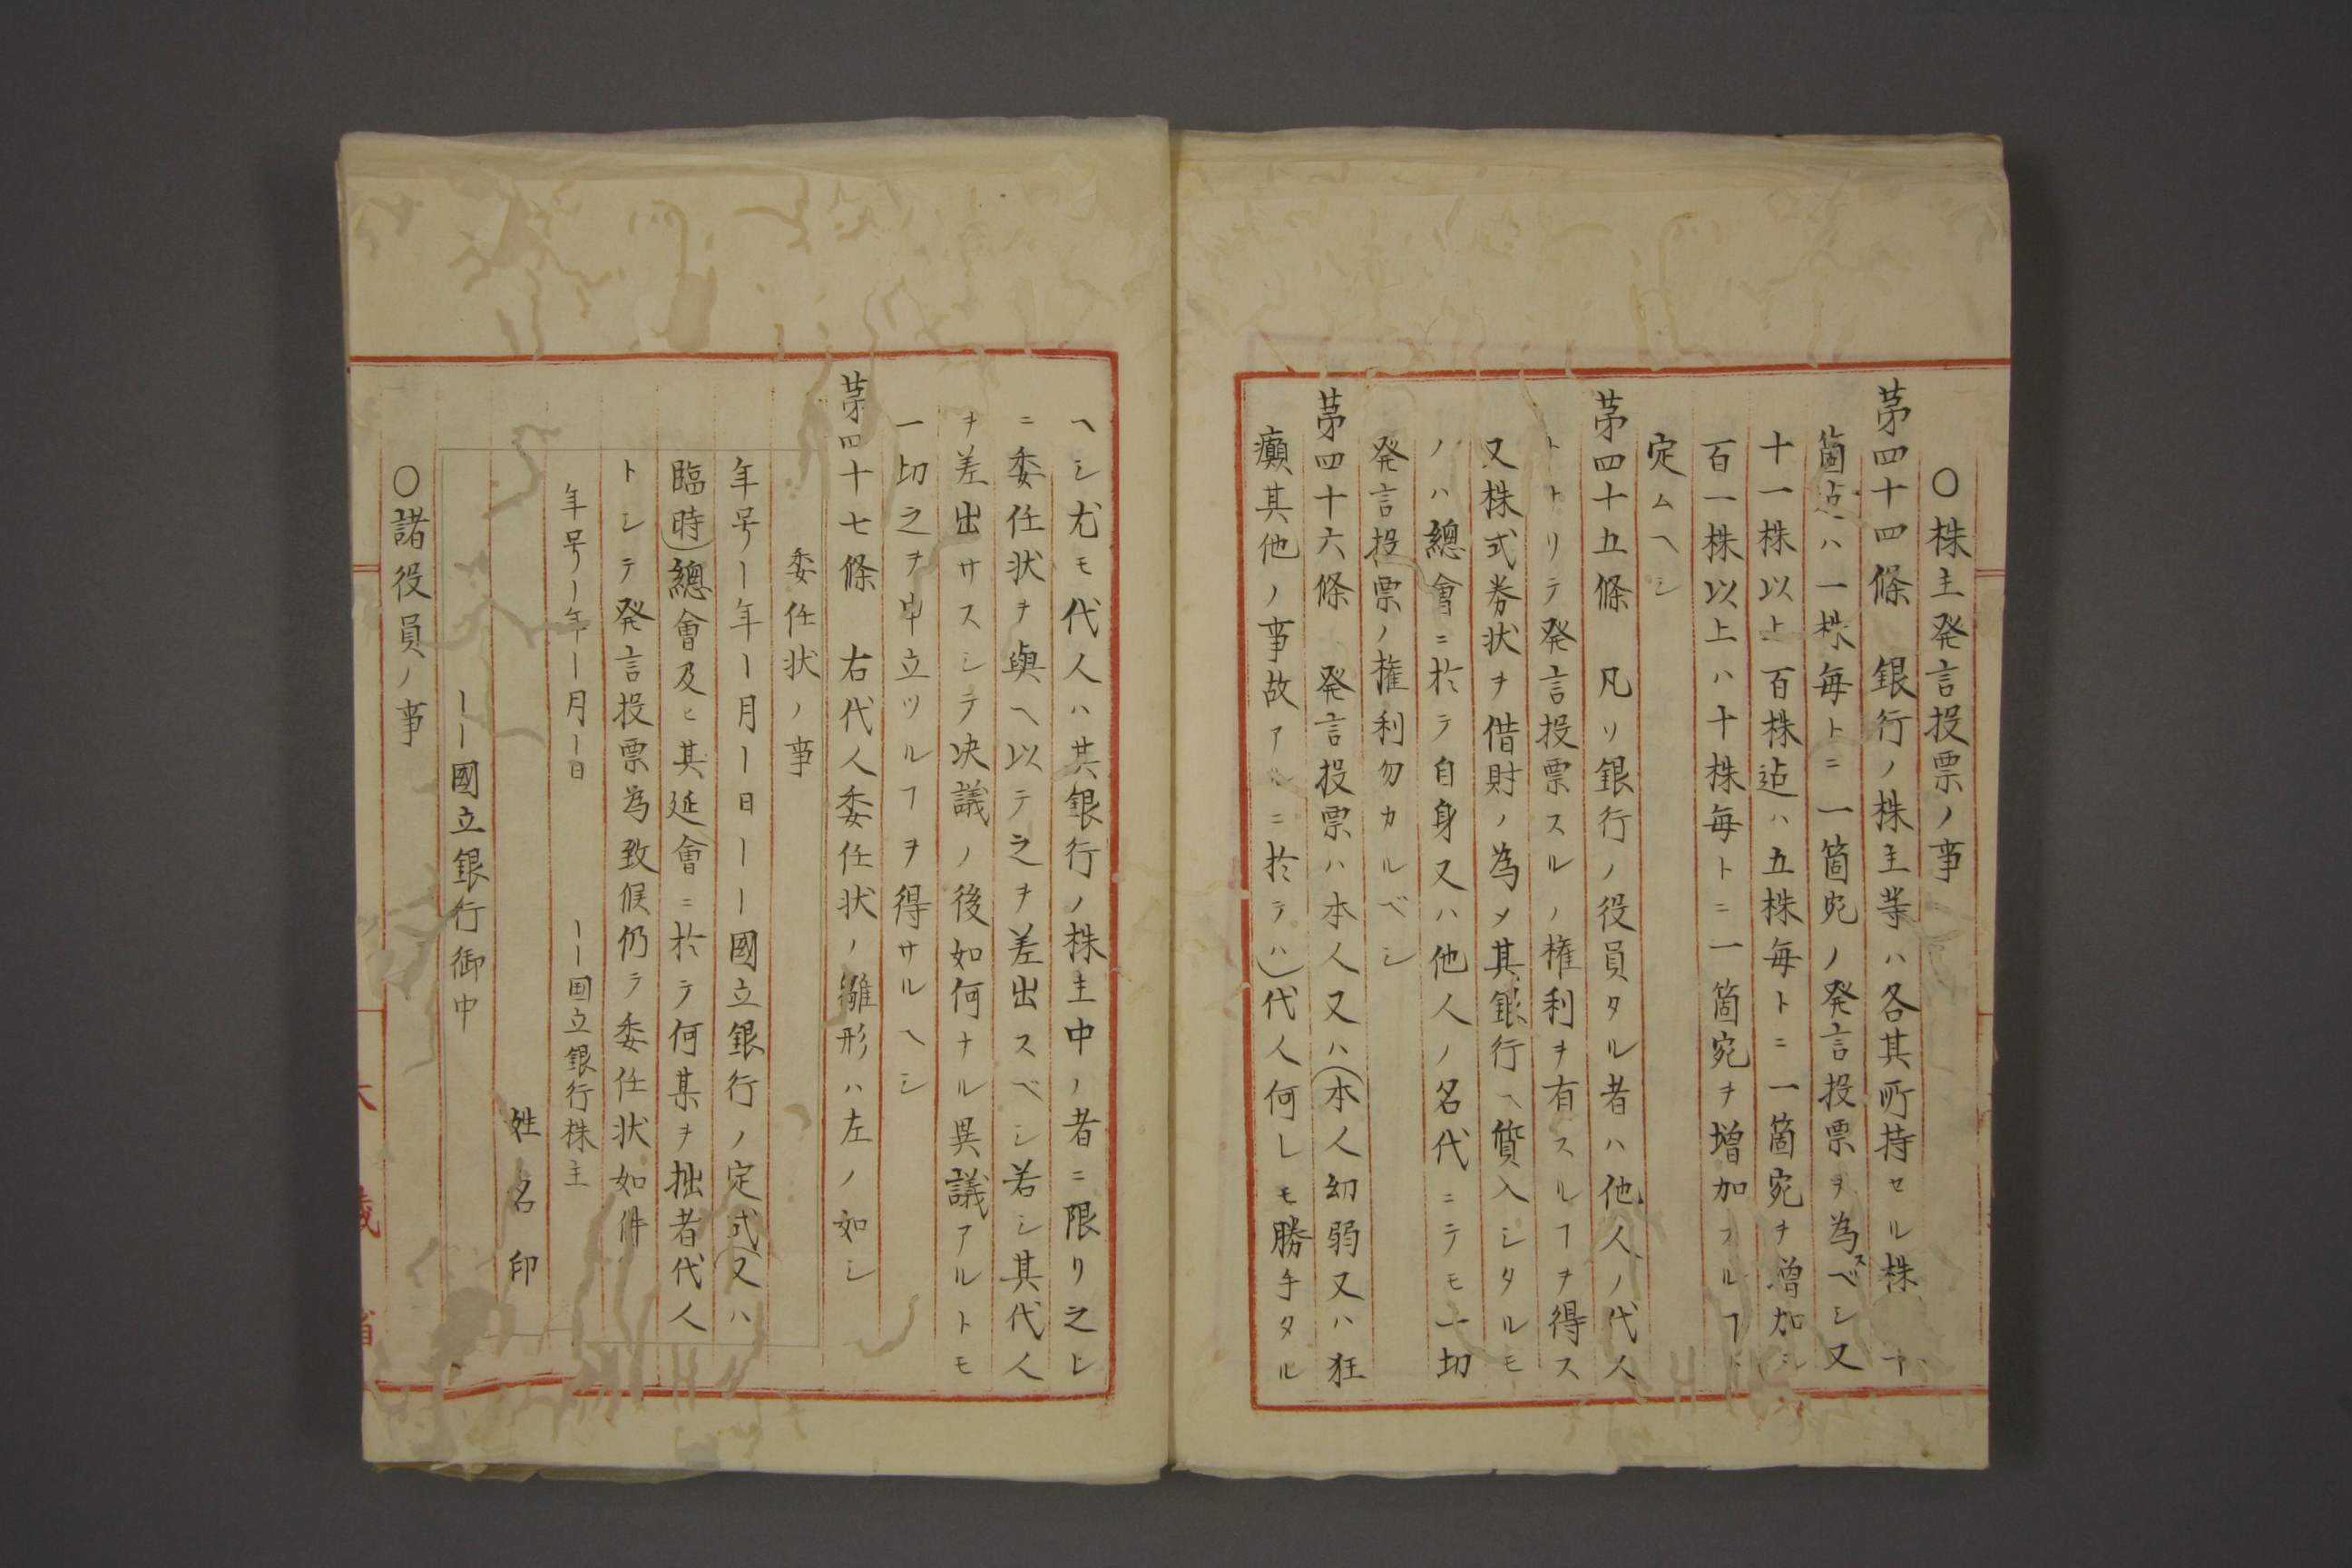 〇株主発言投票ノ事
苐四十四條　銀行ノ株主等ハ各其所持セル株十
箇迠ハ一株毎トニ一箇宛ノ発言投票ヲ為スベシ又
十一株以上百株迠ハ五株毎トニ一箇宛ヲ増加シ
百一株以上ハ十株毎トニ一箇宛ヲ増加フルヿト
定ムヘシ
苐四十五條　凡ソ銀行ノ役員タル者ハ他人ノ代人
トトリテ発言投票スルノ権利ヲ有スルヿヲ得ス
又株式券状ヲ借財ノ為メ其銀行ヘ質入シタルモ
ノハ總會ニ於テ自身又ハ他人ノ名代ニテモ一切
発言投票ノ権利勿カルベシ
苐四十六條　発言投票ハ本人又ハ(本人幻弱又ハ狂
癲其他ノ事故アルニ於テハ)代人何レモ勝手タル
ヘシ尤モ代人ハ其銀行ノ株主中ノ者ニ限リ之レ
ニ委任状ヲ與ヘ以テ之ヲ差出スベシ若シ其代人
ヲ差出サスシテ决議ノ後如何ナル異議アルトモ
一切之ヲ申立ツルヿヲ得サルヘシ
苐四十七條　右代人委任状ノ雛形ハ左ノ如シ
委任状ノ事
年号ー年ー月ー日ーー國立銀行ノ定式(又ハ
臨時)總會及ヒ其延會ニ於テ何某ヲ拙者代人
トシテ発言投票為致候仍テ委任状如件
年号ー年ー月ー日　ーー国立銀行株主
姓名印
ーー國立銀行御中
〇諸役員ノ事